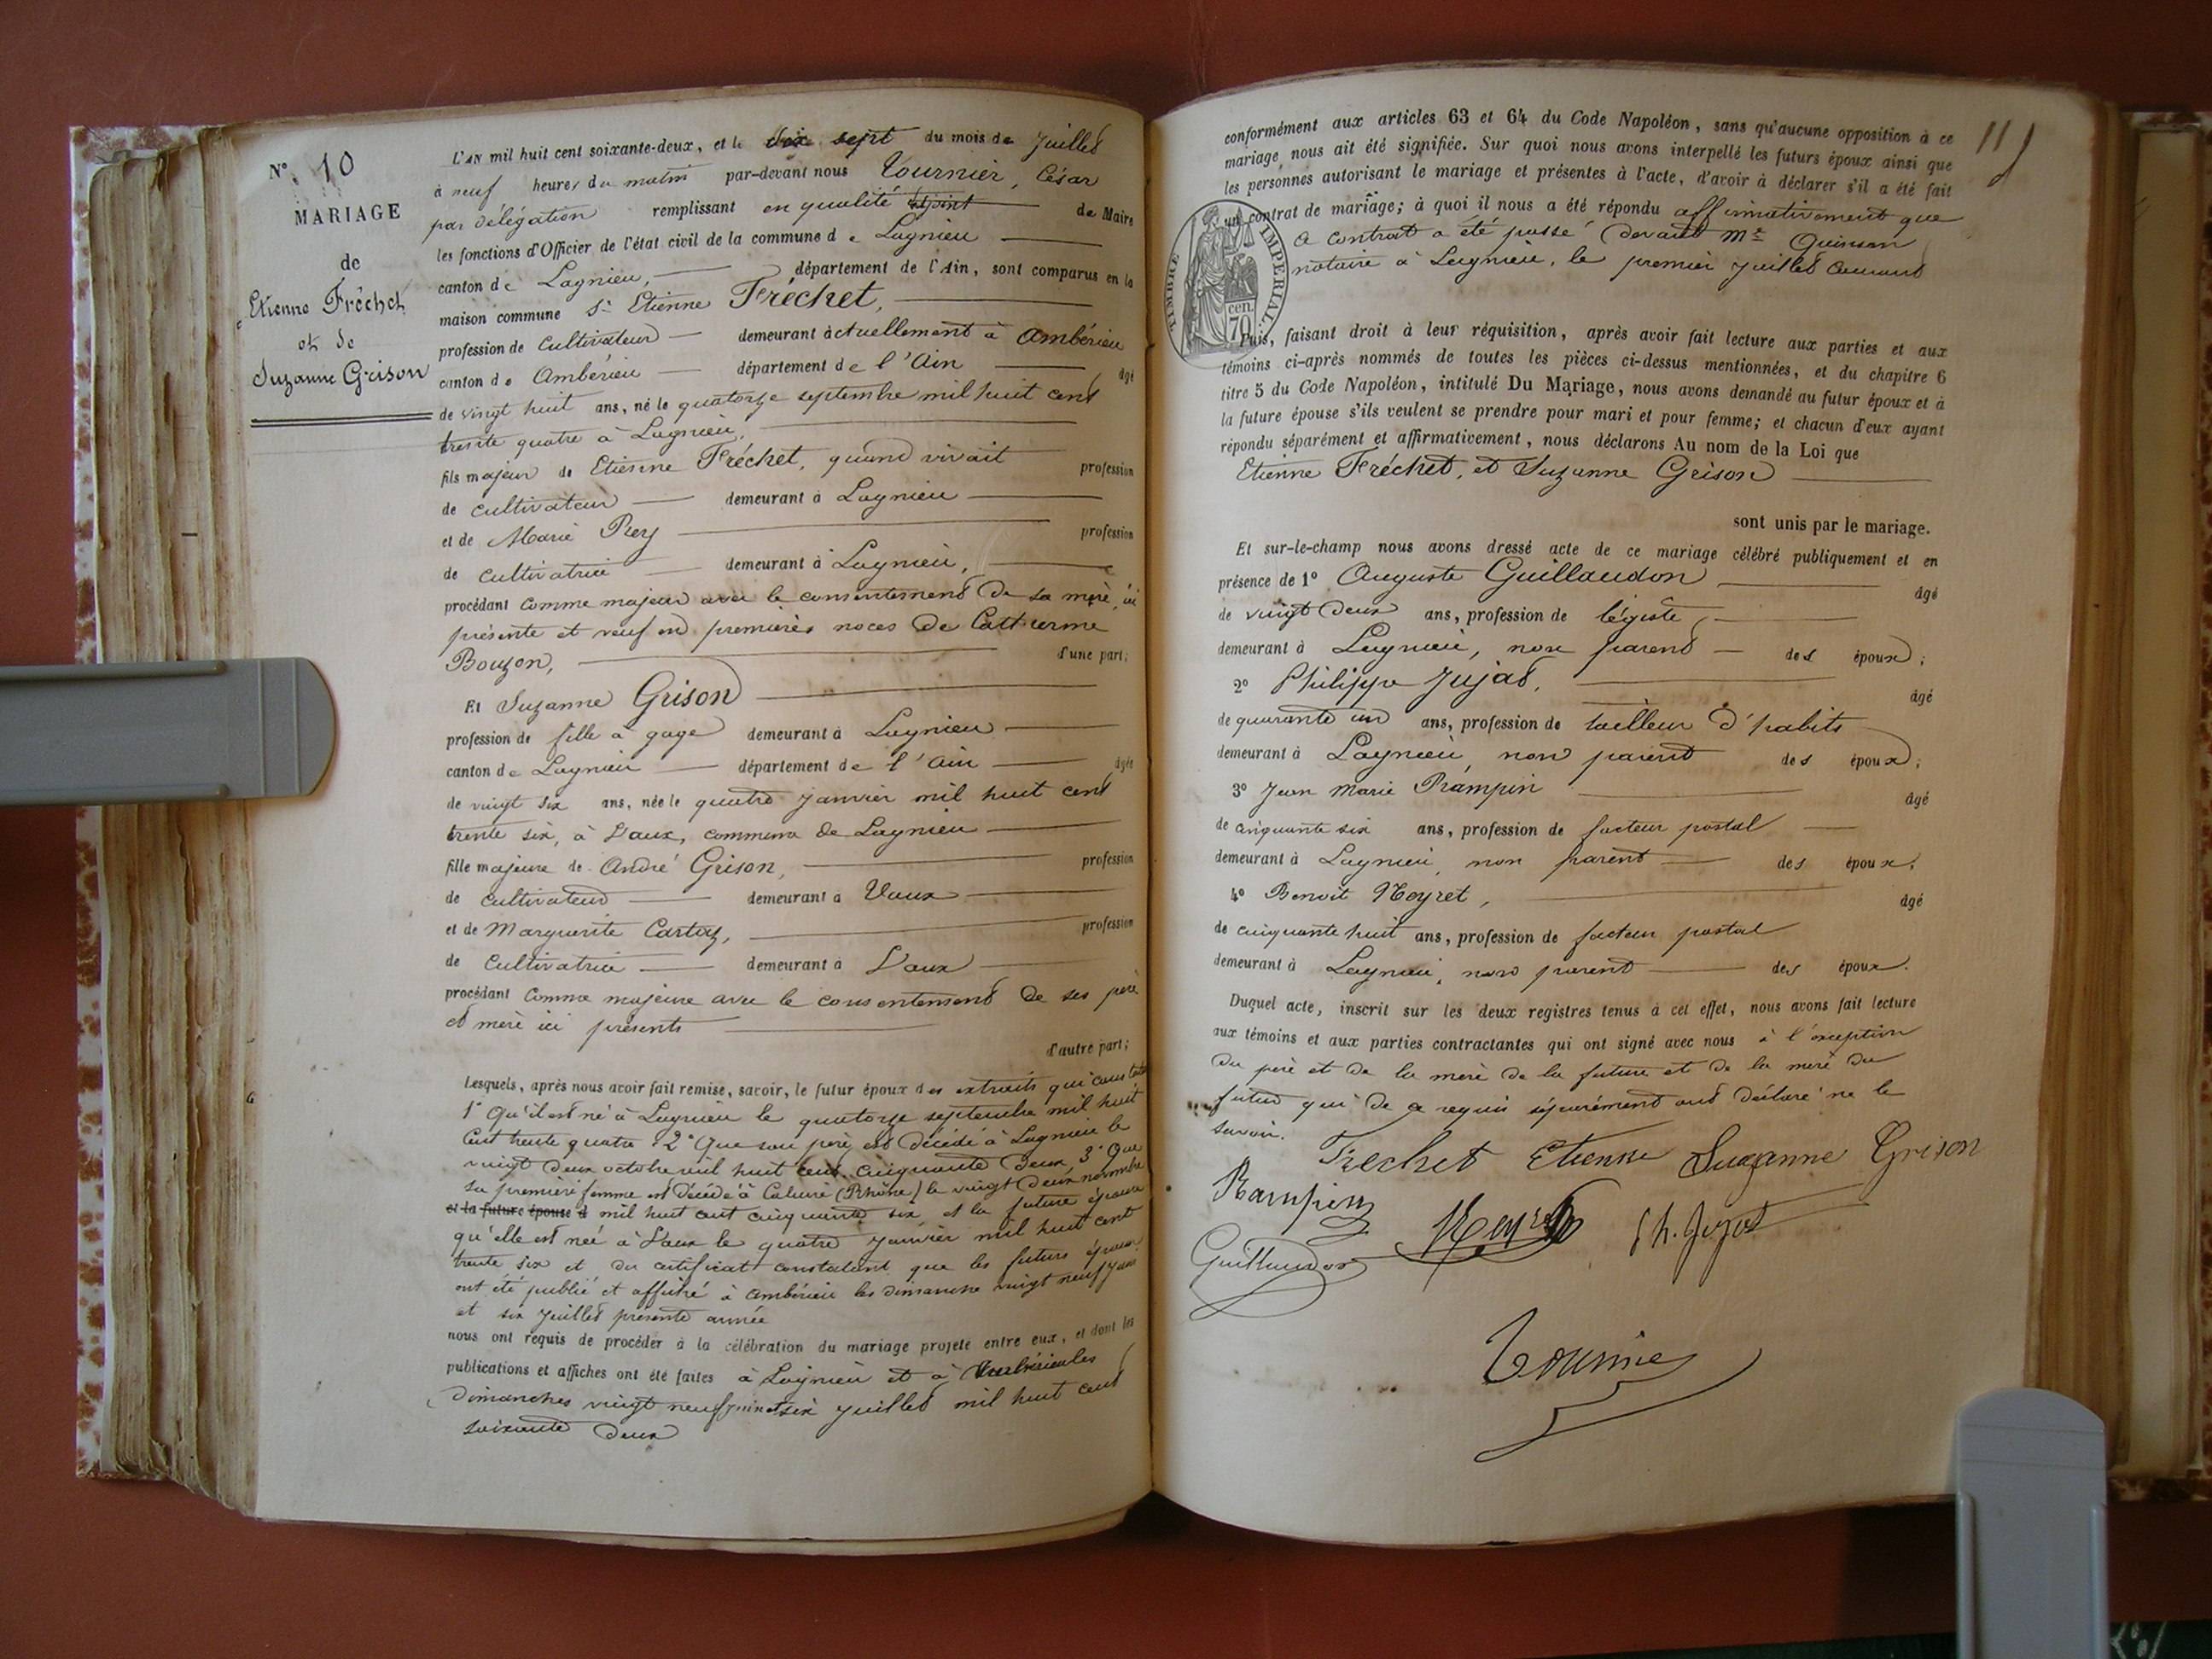 N° 10
MARIAGE
de
Etienne Fréchet
et de
Suzanne Grison
L'AN mil huit cent soixante-deux, et le dix sept du mois de Juillet
à neuf heures du matin par-devant nous Tournier, César
par délégation remplissant en qualité adjoint de Maire
les fonctions d'Officier de l'état civil de la commune de Lagnieu
canton de Lagnieu, département de l'Ain, sont comparus en la
maison commune Sr Etienne Fréchet,
profession de Cultivateur demeurant actuellement à Ambérieu
canton de Ambérieu département de l'Ain âgé
de vingt huit ans, né le quatorze septembre mil huit cent
trente quatre à Lagnieu,
fils majeur de Etienne Fréchet, quand vivait profession
de cultivateur demeurant à Lagnieu
et de Marie Rey profession
de cultivatrice demeurant à Lagnieu,
procédant comme majeur avec le consentement de sa mère, ici
présente et veuf en premières noces de Catherine
Bouzon, d'une part;
Et Suzanne Grison
profession de fille à gage demeurant à Lagnieu
canton de Lagnieu département de l'Ain âgée
de vingt six ans, née le quatre janvier mil huit cent
trente six, à Vaux, commune de Lagnieu
fille majeure de André Grison, profession
de cultivateur demeurant à Vaux
et de Marguerite Cartaz, profession
de cultivatrice demeurant à Vaux
procédant comme majeure avec le consentement de ses père
et mère ici présents
d'autre part;
Lesquels, après nous avoir fait remise, savoir, le futur époux des extraits qui constate
1° Qu'il est né à Lagnieu le quatorze septembre mil huit
cent trente quatre 2° Que son père est décédé à Lagnieu le
vingt deux octobre mil huit cent cinquante deux, 3° Que
sa première femme est décédé à Caluire (Rhône) le vingt deux novembre
et la future épouse d mil huit cent cinquante six et la future épouse
qu'elle est née à Vaux le quatre janvier mil huit cent
trente six et du certificat constatant que les futurs époux
ont été publié et affiché à Ambérieu les dimanche vingt neuf juin
et six juillet présente année
nous ont requis de procéder à la célébration du mariage projeté entre eux, et dont les
publications et affiches ont été faites à Lagnieu et à Ambérieu les
dimanches vingt neuf juin et six juillet mil huit cent
soixante deux
111
conformément aux articles 63 et 64 du Code Napoléon, sans qu'aucune opposition à ce
mariage nous ait été signifiée. Sur quoi nous avons interpellé les futurs époux ainsi que
les personnes autorisant le mariage et présentes à l'acte, d'avoir à déclarer s'il a été fait
un contrat de mariage; à quoi il nous a été répondu affirmativement que
ce contrat a été passé devant Me Quinson
notaire à Lagnieu, le premier juillet courant
TIMBRE IMPERIAL
70 cen
Puis, faisant droit à leur réquisition, après avoir fait lecture aux parties et aux
témoins ci-après nommés de toutes les pièces ci-dessus mentionnées, et du chapitre 6
titre 5 du Code Napoléon, intitulé Du Mariage, nous avons demandé au futur époux et à
la future épouse s'ils veulent se prendre pour mari et pour femme; et chacun d'eux ayant
répondu séparément et affirmativement, nous déclarons Au nom de la Loi que
Etienne Fréchet, et Suzanne Grison
sont unis par le mariage.
Et sur-le-champ nous avons dressé acte de ce mariage célébré publiquement et en
présence de 1° Auguste Guillaudon âgé
de vingt deux ans, profession de légiste,
demeurant à Lagnieu, non parent des époux;
2° Philippe Jujat, âgé
de quarante un ans, profession de tailleur d'habits
demeurant à Lagnieu, non parent des époux;
3° Jean Marie Rampin âgé
de cinquante six ans, profession de facteur postal
demeurant à Lagnieu, non parent des époux;
4° Benoit Neyret, âgé
de cinquante huit ans, profession de facteur postal
demeurant à Lagnieu, non parent des époux.
Duquel acte, inscrit sur les deux registres tenus à cet effet, nous avons fait lecture
aux témoins et aux parties contractantes qui ont signé avec nous à l'exception
du père et de la mère de la future et de la mère du
futur qui de ce requis séparément ont déclaré ne le
savoir.
Frechet Etienne Suzanne Grison
Rampin Neyret Ph. Jujat
Guillaudon
Tournier